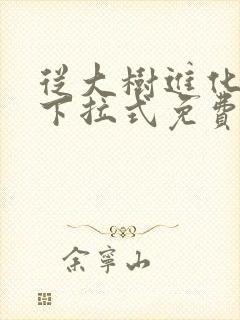 從大樹進化
下拉式免費
余寧山